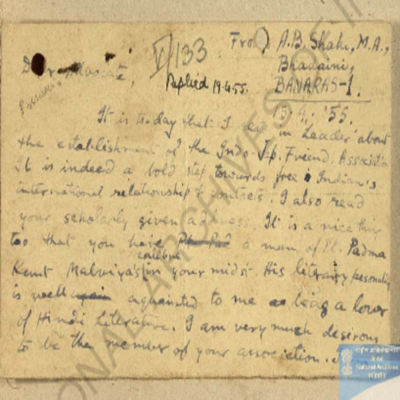 From) A.B. Shahi, M.A.,
V/133
Bhadaini,
Dear Advocate,
Replied 19.4.55.
BANARAS-1.
'55.
It is to-day that I in Leader about
the establishment of the Indo- Friend. Associatn
It is indeed a bold step towards free India's
international relationship & contacts. I also read
your scholarly given address. It is a nice thing
too that you have a man of Pt. Padma
Kant Malviya's calibre in your midst. His literary personality
is well acquainted to me as being a lover
of Hindi literature. I am very much desirous
to be the member of your association.
National Archives